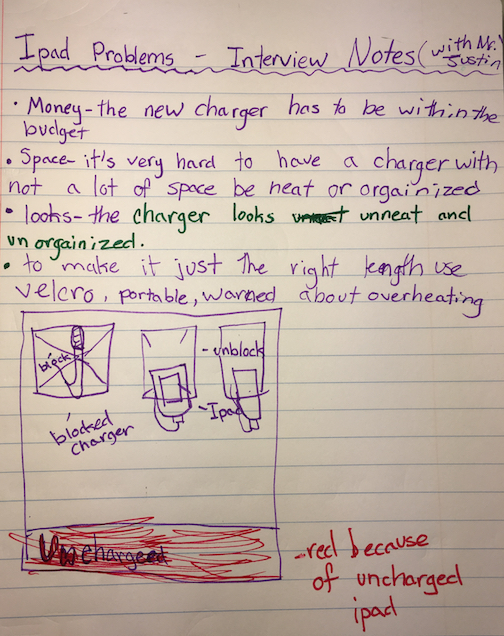 Ipad Problems - Interview Notes (with Mr. Justin)
• Money - the new charger has to be within the
budget
• Space - it's very hard to have a charger with
not a lot of space be neat or orgainized
• looks - the charger looks unneat and
un orgainized.
• to make it just the right length use
velcro, portable, warned about overheating
block
- unblock
- Ipad
blocked
charger
Unchargeed
- red because
of uncharged
ipad